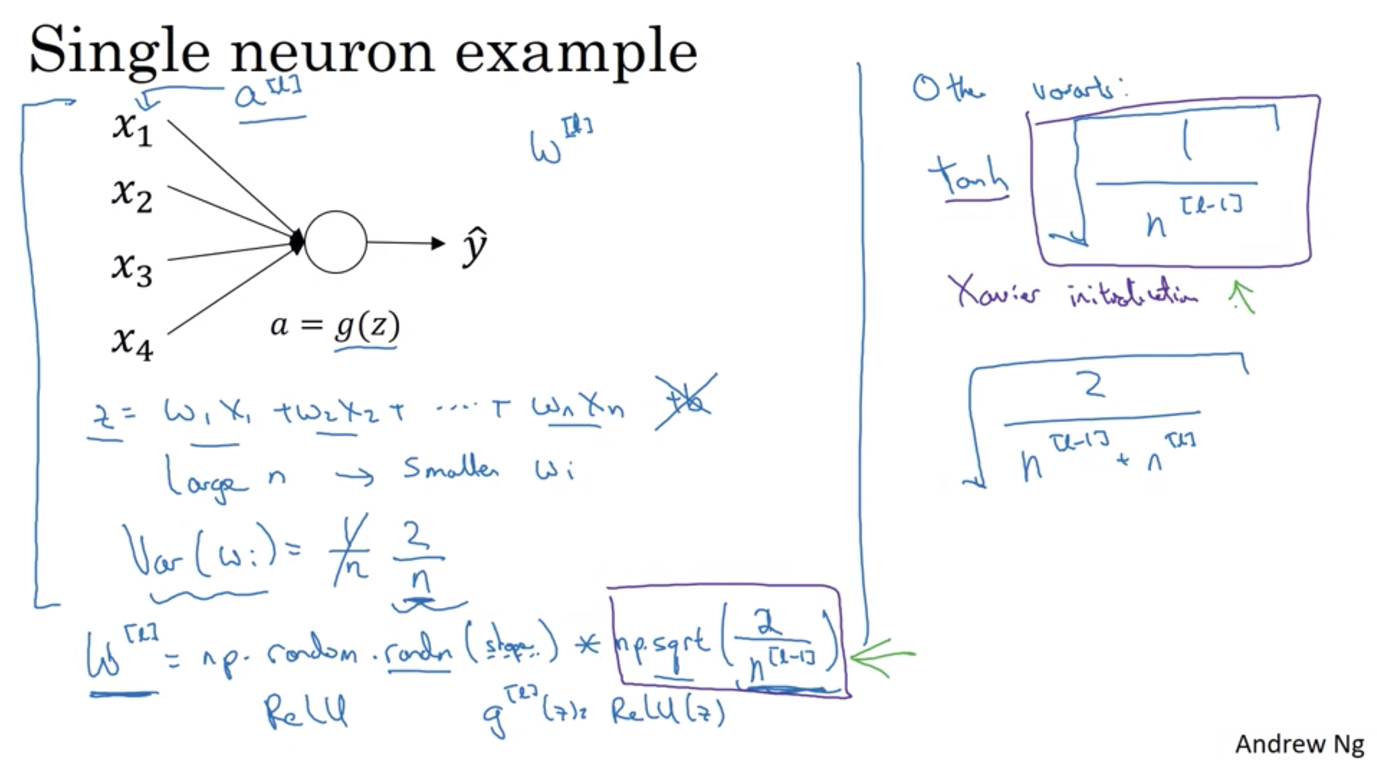 Single neuron example
a^[l]
x₁
x₂
x₃
x₄
ŷ
a = g(z)
w^[l]
z = w₁x₁ + w₂x₂ + ···· + wₙxₙ +b
Large n → Smaller wᵢ
Var(wᵢ) = 1/n 2/n
W^[l] = np.random.randn(shape) * np.sqrt(2/n^[l-1])
ReLU g^[l](z) = ReLU(z)
Other variants:
tanh √(1/n^[l-1])
Xavier initialization ↑
√(2/(n^[l-1] + n^[l]))
Andrew Ng